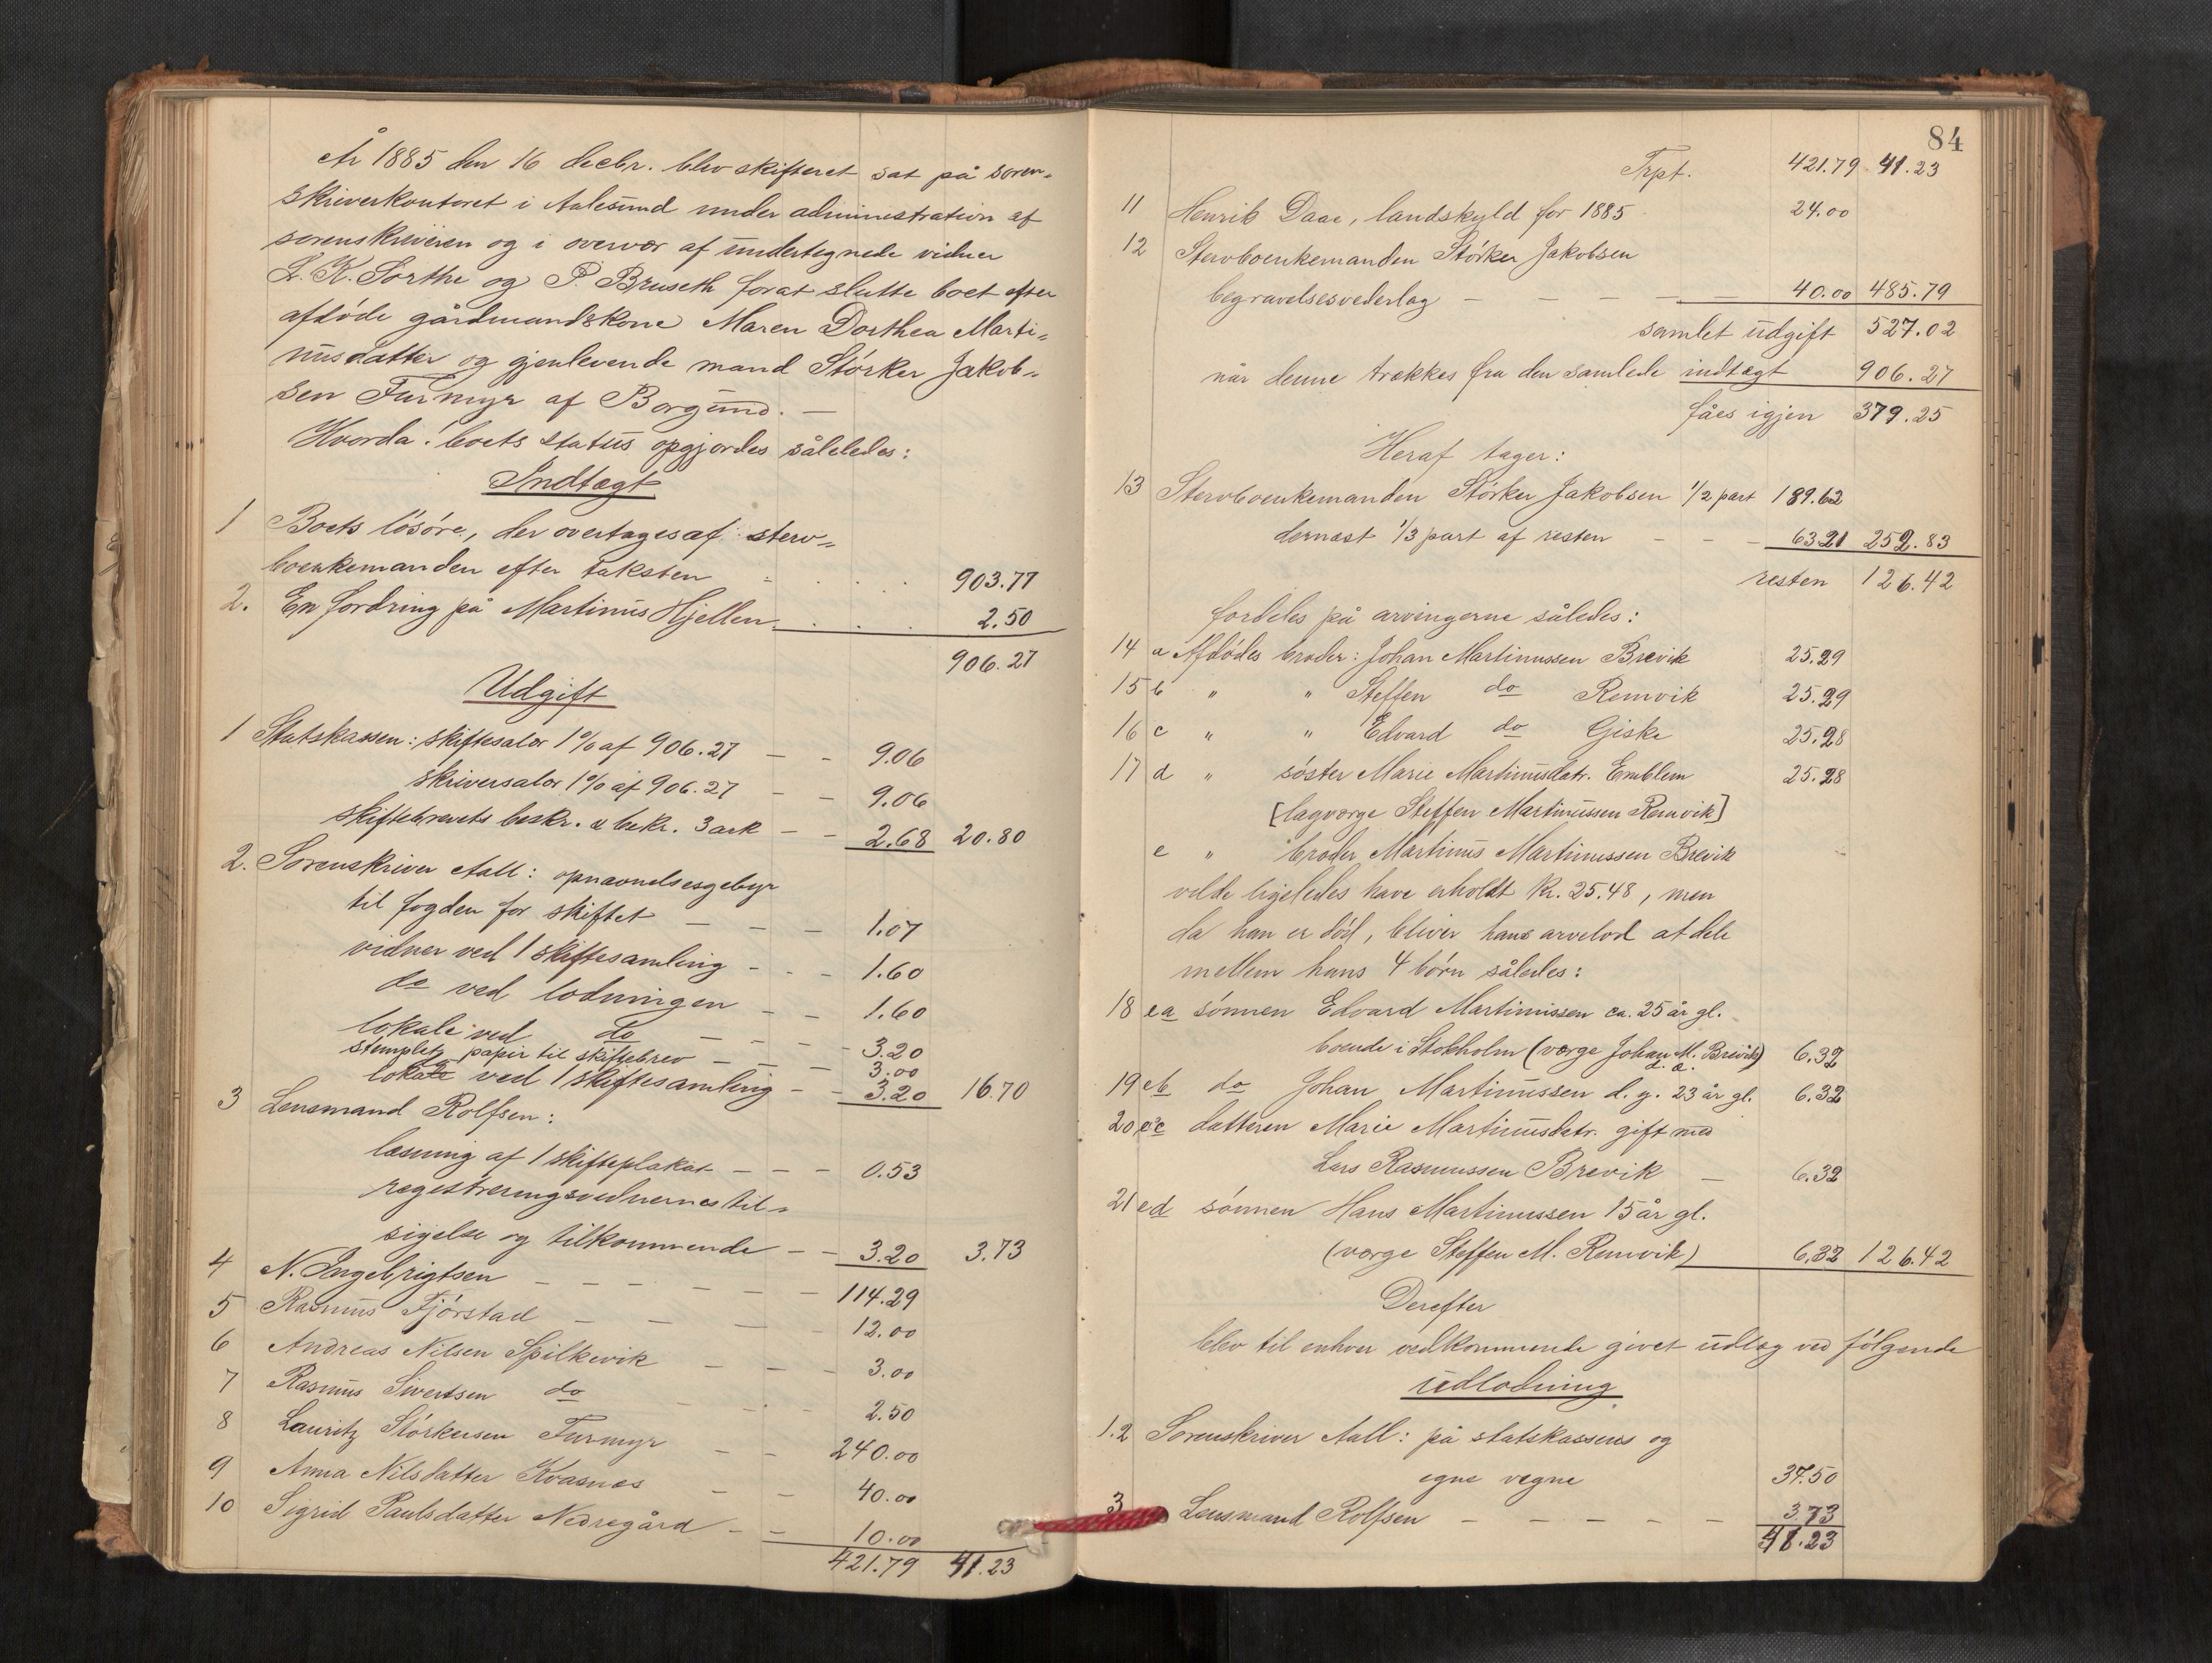 År 1885 den 16 decbr. blev skifteret sat på soren-
skriverkontoret i Aalesund under administration af
sorenskriveren og i overvær af undertegnede vidner
L. K. Sorthe og P. Bruseth forat slutte boet efter
afdøde gårdmandskone Maren Dorthea Marti-
nusdatter og gjenlevende mand Størker Jakob-
sen Furmyr af Borgund. —
Hvorda! boets status opgjordes således:
Indtægt
1 Boets løsøre, der overtages af sterv-
boenkemanden efter taksten . . . 903.77
2. En fordring på Martinus Hjellen . . . 2.50
906.27
Udgift
1 Statskassen: skiftesalør 1% af 906.27 — — 9.06
skriversalør 1% af 906.27 — — 9.06
skiftebrevets beskr. & bekr. 3 ark — — 2.68 20.80
2. Sorenskriver Aall: opnævnelsesgebyr
til fogden for skiftet — — — 1.07
vidner ved 1 skiftesamling — — — 1.60
do ved lodningen — — 1.60
lokale ved do — — — 3.20
stemplet papir til skiftebrev — — — 3.00
lokale ved 1 skiftesamling — — 3.20 16.70
3 Lensmand Rolfsen:
læsning af 1 skifteplakat — — — 0.53
registreringsvidnernes til-
sigelse og tilkommende — — 3.20 3.73
4 N. Ingebrigtsen — — — — — 114.29
5 Rasmus Fjørstad — — — — 12.00
6 Andreas Nilsen Spilkevik — — — 3.00
7 Rasmus Sivertsen do — — — 2.50
8 Lauritz Størkersen Furmyr — — 240.00
9 Anna Nilsdatter Kvasnes — — 40.00
10 Sigrid Paulsdatter Nedregård — — 10.00
421.79 41.23
84
Trpt. 421.79 41.23
11 Henrik Daae, landskyld for 1885 24.00
12 Stervboenkemanden Størker Jakobsen
begravelsesvederlag — — — — — 40.00 485.79
samlet udgift 527.02
når denne trækkes fra den samlede indtægt 906.27
fåes igjen 379.25
Heraf tager:
13 Stervboenkemanden Størker Jakobsen 1/2 part 189.62
dernæst 1/3 part af resten — — — 63.21 252.83
resten 126.42
fordeles på arvingerne således:
14 a Afdødes broder: Johan Martinussen Brevik 25.29
15 b " " Steffen do Remvik 25.29
16 c " " Edvard do Giske 25.28
17 d " søster Marie Martinusdatr. Emblem 25.28
[lagværge Steffen Martinussen Remvik]
e " broder Martinus Martinussen Brevik
vilde ligeledes have erholdt Kr. 25.48, men
da han er død, bliver hans arvelod at dele
mellem hans 4 børn således:
18 ea sønnen Edvard Martinussen ca. 25 år gl.
boende i Stokholm (værge Johan M. Brevik) 6.32
d. æ.
19 eb do Johan Martinussen d. y. 23 år gl. 6.32
20 ec datteren Marie Martinusdatr. gift med
Lars Rasmussen Brevik — 6.32
21 ed sønnen Hans Martinussen 15 år gl.
(værge Steffen M. Remvik) 6.32 126.42
Derefter
blev til enhver vedkommende givet udlæg ved følgende
udlodning
1.2 Sorenskriver Aall: på statskassens og
egne vegne 37.50
3 Lensmand Rolfsen — — — — — 3.73
41.23